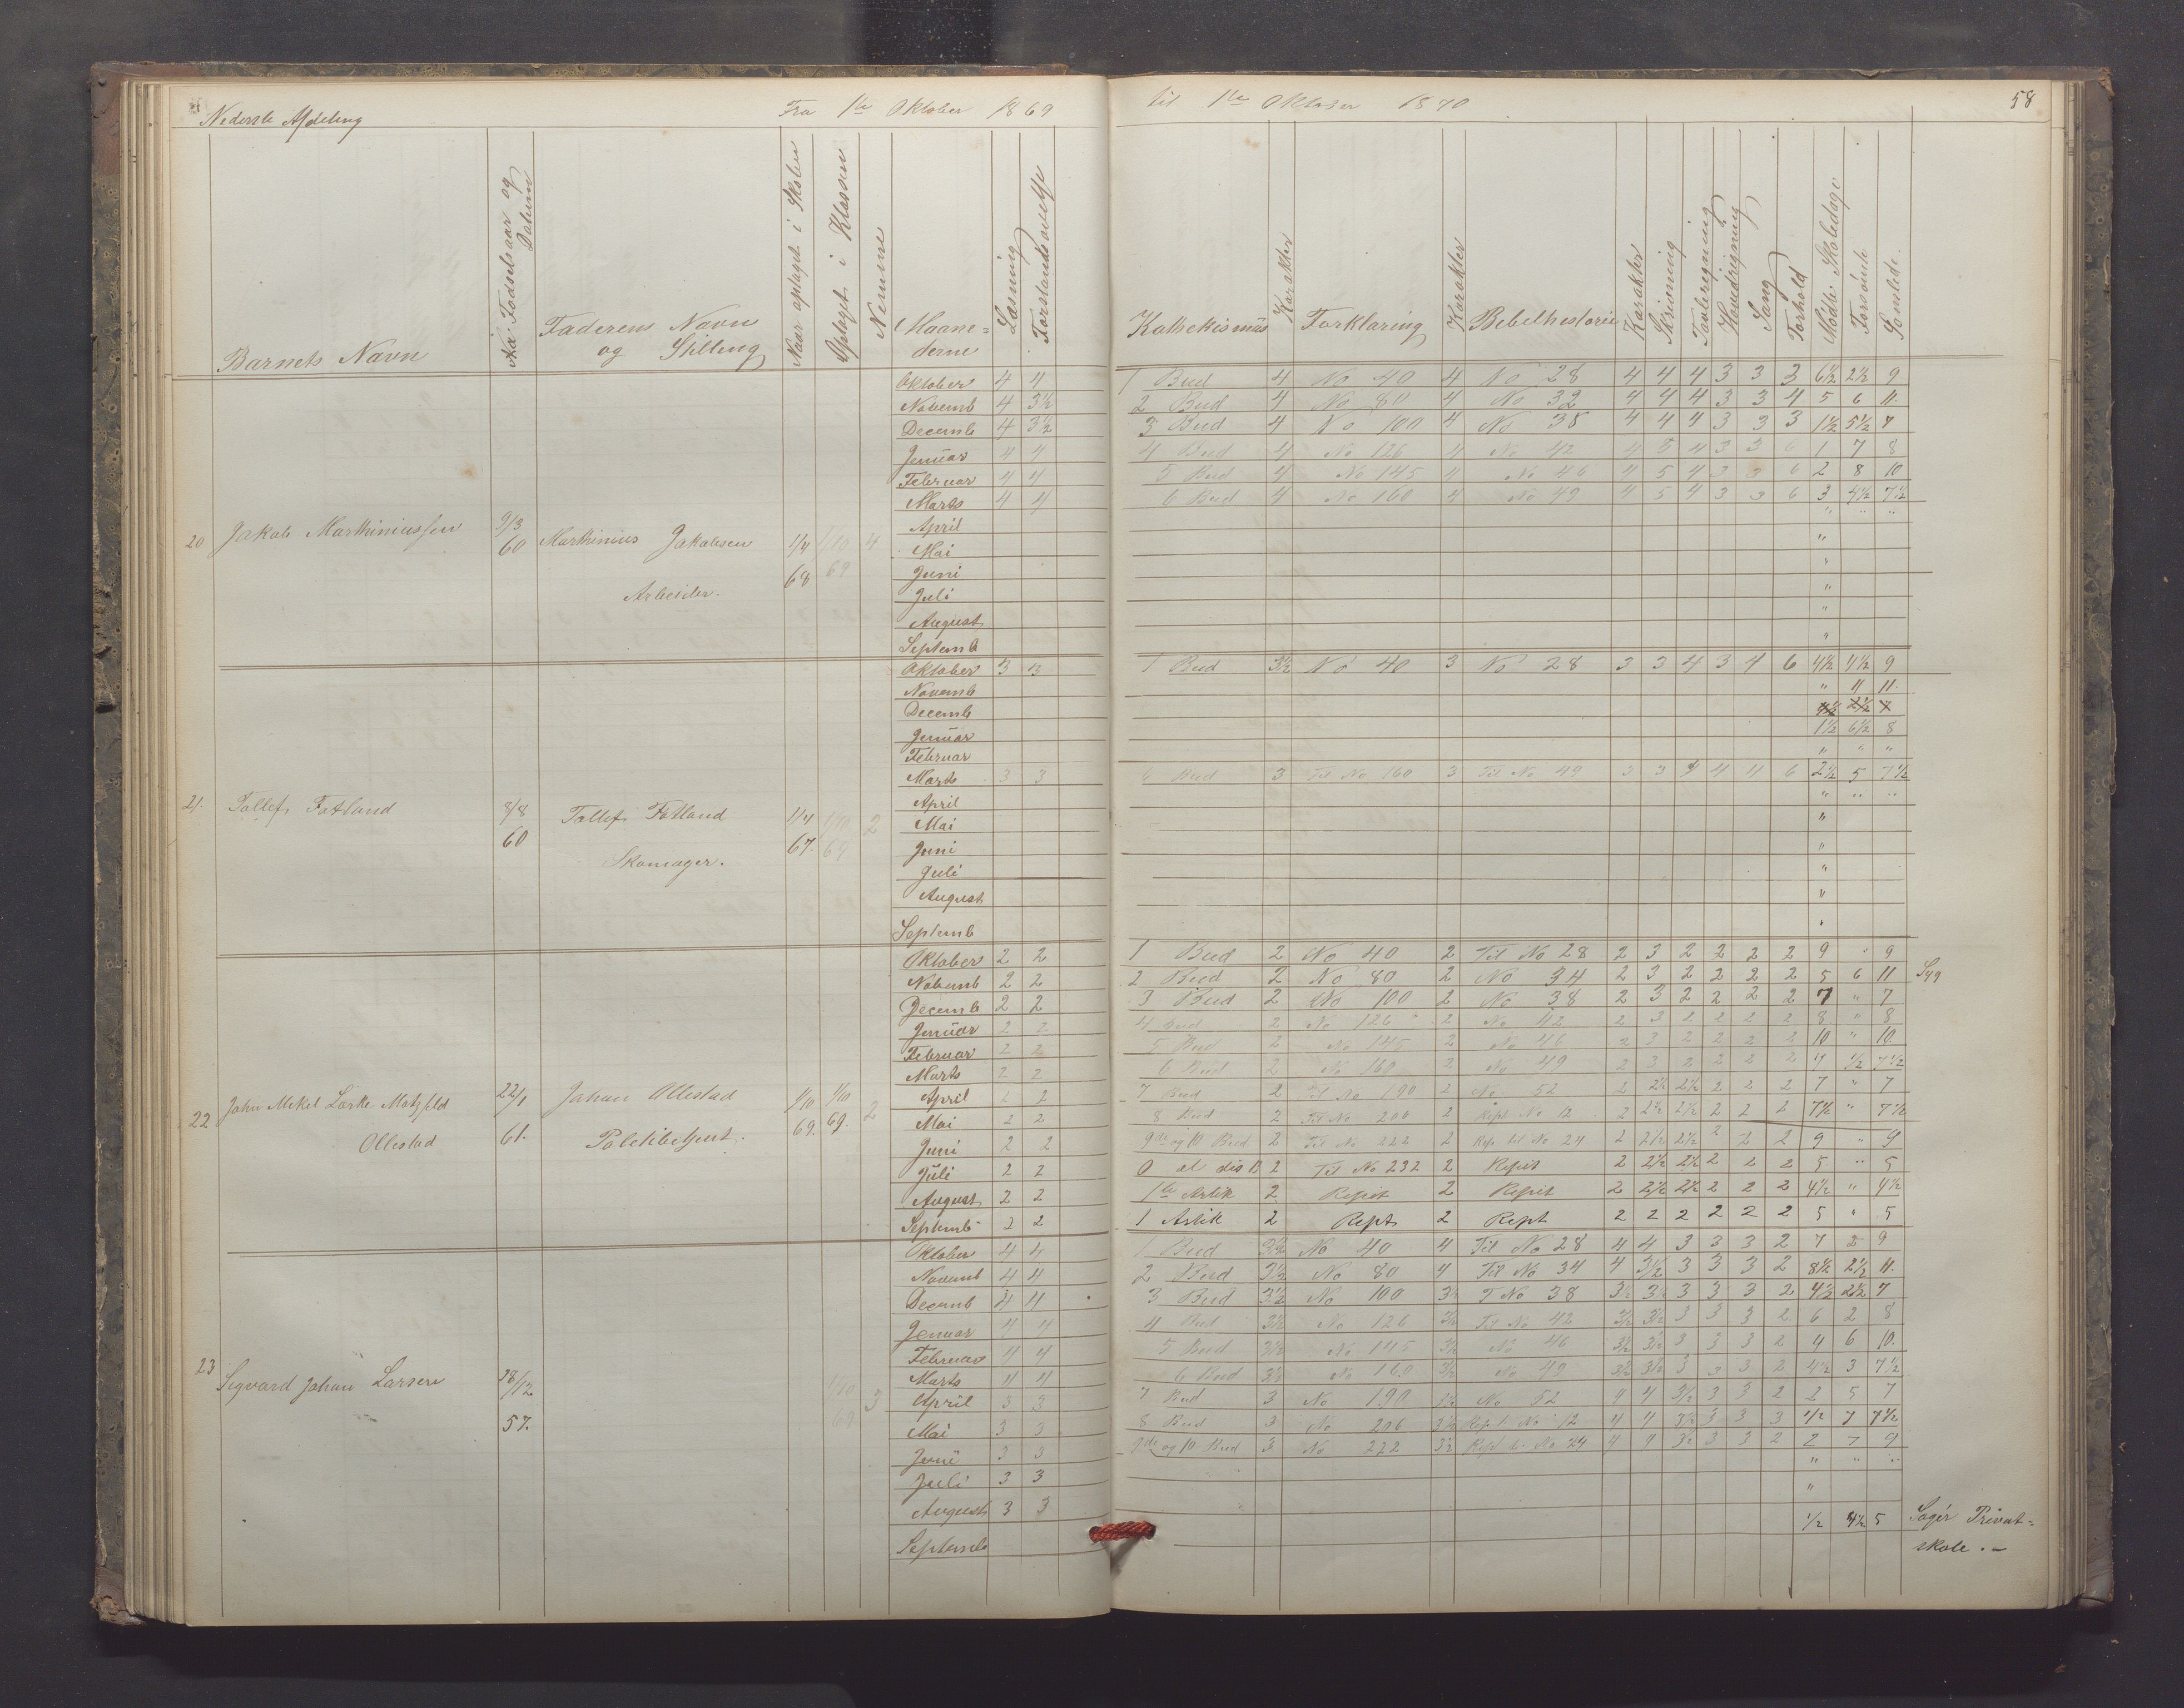 Nederste Afdeling Fra 1te Oktober 1869 til 1te Oktober 1870 58
Barnets Navn Aar Fødselsaar og Datum Faderens Navn og Stilling Naar optaget i Skolen Optaget i Klassen Nemme Maanederne Læsning Forstandsøvelse Kathekismus Karakter Forklaring Karakter Bibelhistorie Karakter Skrivning Tavleregning Hovedregning Sang Forhold Mødte Skoledage Forsømte Samlede
20 Jakob Marthiniussen 9/3 60 Marthinius Jakobsen Arbeider. 1/4 68 1/10 69 4
Oktober 4 4 1 Bud 4 No 40 4 No 28 4 4 4 3 3 3 6½ 2½ 9
Novemb 4 3½ 2 Bud 4 No 80 4 No 32 4 4 4 3 3 4 5 6 11.
Decemb 4 3½ 3 Bud 4 No 100 4 No 38 4 4 4 3 3 3 1½ 5½ 7
Januar 4 4 4 Bud 4 No 126 4 No 42 4 5 4 3 3 6 1 7 8
Februar 4 4 5 Bud 4 No 145 4 No 46 4 5 4 3 3 6 2 8 10
Marts 4 4 6 Bud 4 No 160 4 No 49 4 5 4 3 3 6 3 4½ 7½
April " " "
Mai "
Juni "
Juli "
August "
Septemb "
21. Tollef Fotland 8/8 60 Tollef Fotland Skomager. 1/4 67. 1/10 69 2
Oktober 3 3 1 Bud 3½ No 40 3 No 28 3 3 4 3 4 6 4½ 4½ 9
Novemb " 11 11.
Decemb 4½ 2½ 7
Januar 1½ 6½ 8
Februar " " "
Marts 3 3 6 Bud 3 Til No 160 3 Til No 49 3 3 4 4 4 6 2½ 5 7½
April " " "
Mai "
Juni "
Juli "
August "
Septemb "
22 John Mikel Lærke Motzfeld Ollestad 22/1 61. Johan Ollestad Politibetjent. 1/10 69. 1/10 69. 2
Oktober 2 2 1 Bud 2 No 40 2 Til No 28 2 3 2 2 2 2 9 " 9
Novemb 2 2 2 Bud 2 No 80 2 No 34 2 3 2 2 2 2 5 6 11 Syg
Decemb 2 2 3 Bud 2 No 100 2 No 38 2 3 2 2 2 2 7 " 7
Januar 2 2 4 Bud 2 No 126 2 No 42 2 3 2 2 2 2 8 " 8
Februar 2 2 5 Bud 2 No 145 2 No 46 2 3 2 2 2 2 10 " 10.
Marts 2 2 6 Bud 2 No 160 2 No 49 2 3 2 2 2 2 7 ½ 7½
April 2 2 7 Bud 2 Til No 190 2 No 52 2 2½ 2½ 2 2 2 7 " 7
Mai 2 2 8 Bud 2 Til No 206 2 Rept No 12 2 2½ 2½ 2 2 2 7½ " 7½
Juni 2 2 9de og 10 Bud 2 Til No 222 2 Rep til No 24 2 2½ 2½ 2 2 2 9 " 9
Juli 2 2 2 Til No 232 2 Repit 2 2½ 2½ 2 2 2 5 " 5
August 2 2 1te Artik 2 Repit 2 Repit 2 2½ 2½ 2 2 2 4½ " 4½
Septemb 2 2 1 Artik 2 Rept 2 Rept 2 2 2 2 2 2 5 " 5
23 Sigvard Johan Larsen 18/12 57. 1/10 69 3
Oktober 4 4 1 Bud 3½ No 40 4 Til No 28 4 4 3 3 3 2 7 2 9
Novemb 4 4 2 Bud 3½ No 80 4 Til No 34 4 3½ 3 3 3 2 8½ 2½ 11.
Decemb 4 4 3 Bud 3½ No 100 3½ T No 38 3½ 3½ 3 3 3 2 4½ 2½ 7
Januar 4 4 4 Bud 3½ No 126 3½ Til No 42 3½ 3½ 3 3 3 2 6 2 8
Februar 4 4 5 Bud 3½ No 145 3½ No 46 3½ 3½ 3 3 3 2 4 6 10.
Marts 4 4 6 Bud 3½ No 160 3½ No 49 3½ 3½ 3 3 3 2 4½ 3 7½
April 3 3 7 Bud 3 No 190 3½ No 52 4 4 3½ 3 3 2 2 5 7
Mai 3 3 8 Bud 3 No 206 3½ Rept No 12 4 4 3½ 3 3 3 ½ 7 7½
Juni 3 3 9de og 10 Bud 3 No 222 3½ Rept til No 24 4 4 3½ 3 3 2 2 7 9
Juli 3 3 " " "
August 3 3 "
Septemb ½ 4½ 5 Søger Privat=
skole.-